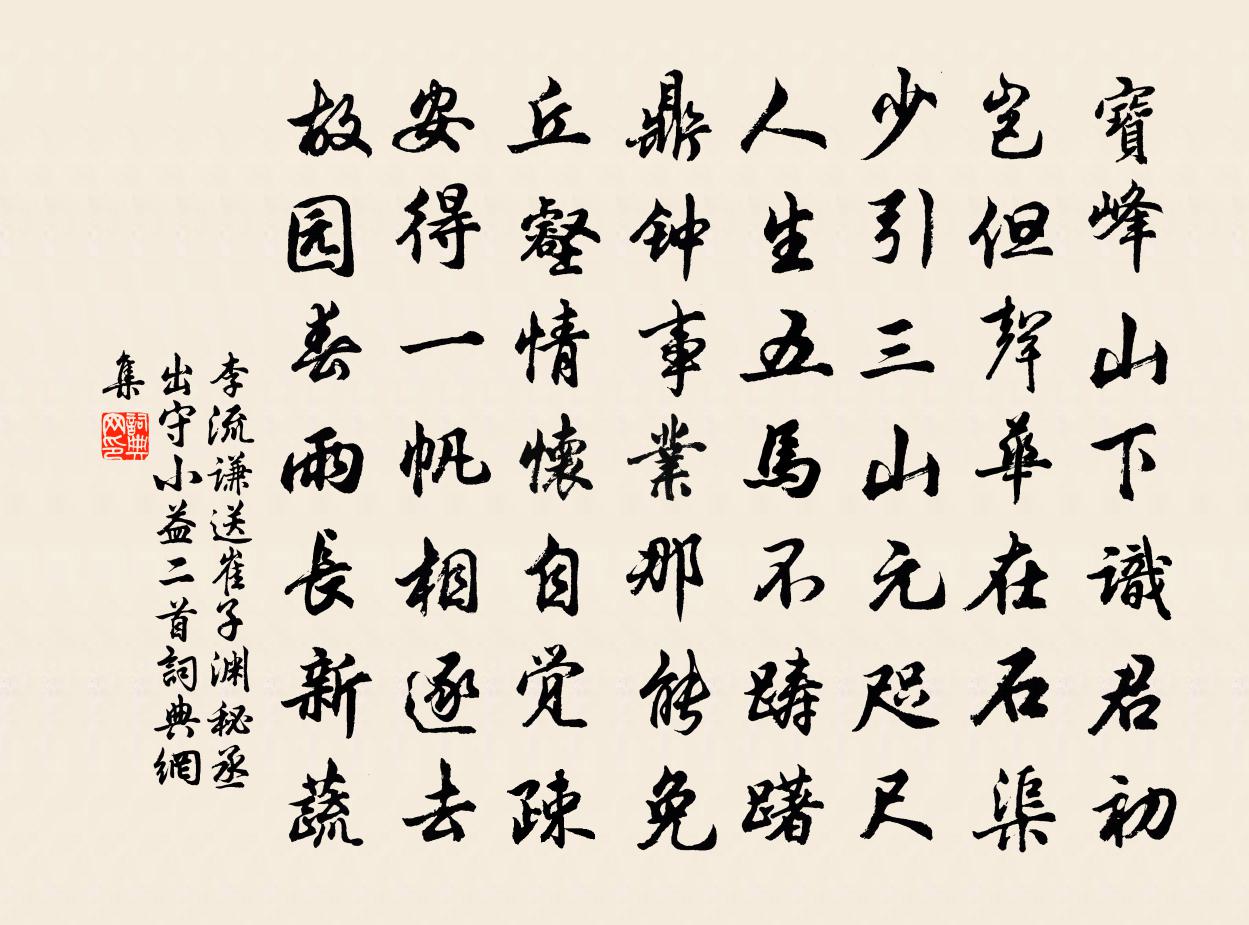 寶峰山下識君初
岂但聲華在石渠
少引三山元咫尺
人生五馬不躊躇
鼎钟事業那能免
丘壑情懷自觉疎
安得一帆相逐去
故园春雨長新蔬
李流谦送崔子渊秘丞
出守小益二首詞典網
集
詞典
网印